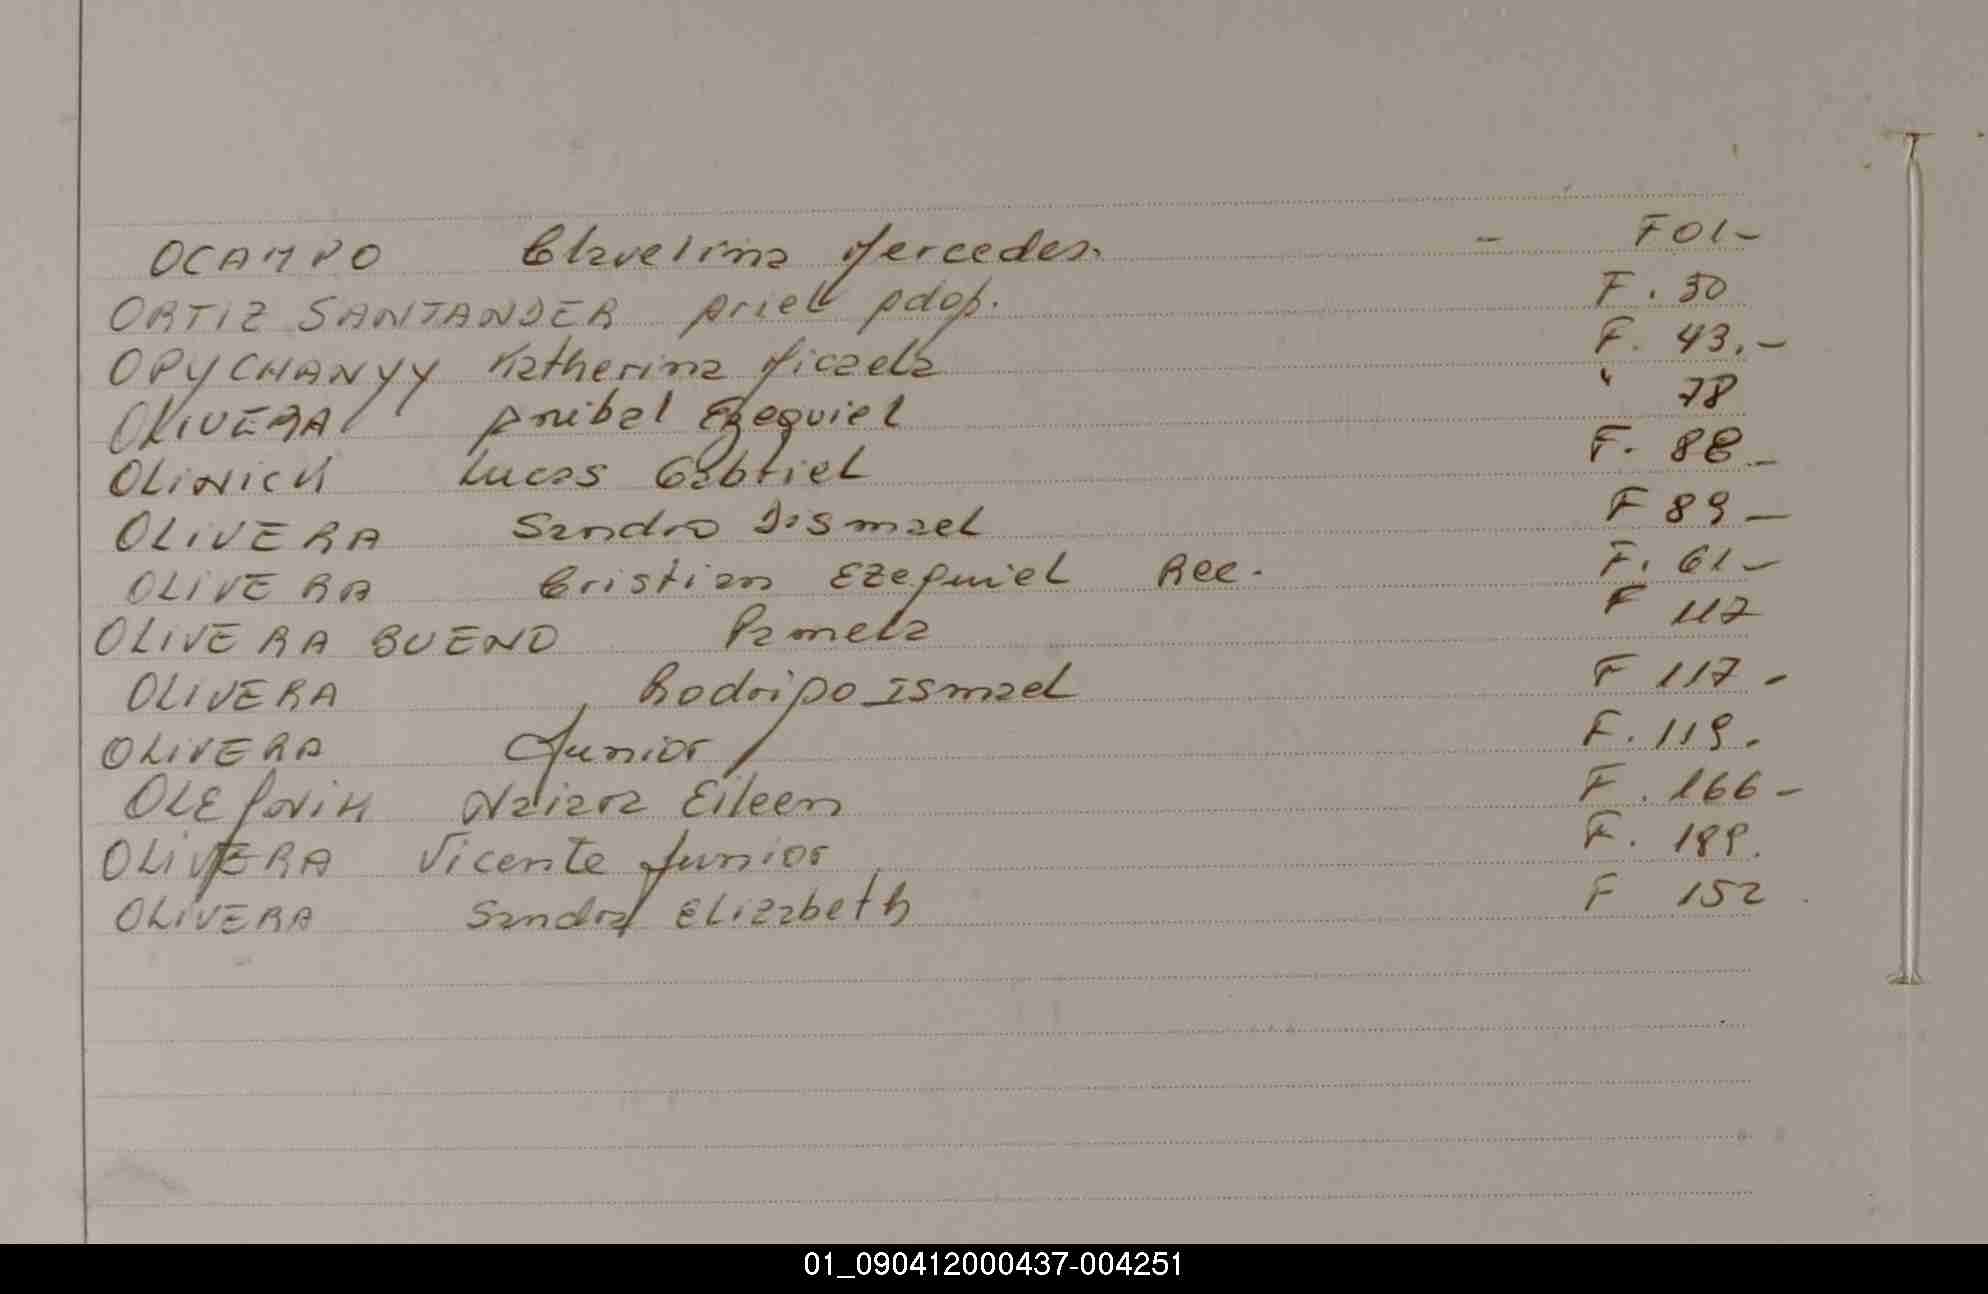 OCAMPO Clavelina Mercedes. - F 01-
ORTIZ SANTANDER Ariel Adop. F. 50
OPYCHANYY Katherina Micaela F. 43.-
OLIVERA Anibal Ezequiel " 78
OLINICK Lucas Gabriel F. 88-
OLIVERA Sandro Dismael F 89-
OLIVERA Cristian Ezequiel Rec. F. 61-
OLIVERA BUENO Pamela F 117
OLIVERA Rodrigo Ismael F 117-
OLIVERA Junior F. 119.
Naiara Eileen F. 166-
OLIVERA Vicente Junior F. 189.
OLIVERA Sandra Elizabeth F 152
01_090412000437-004251